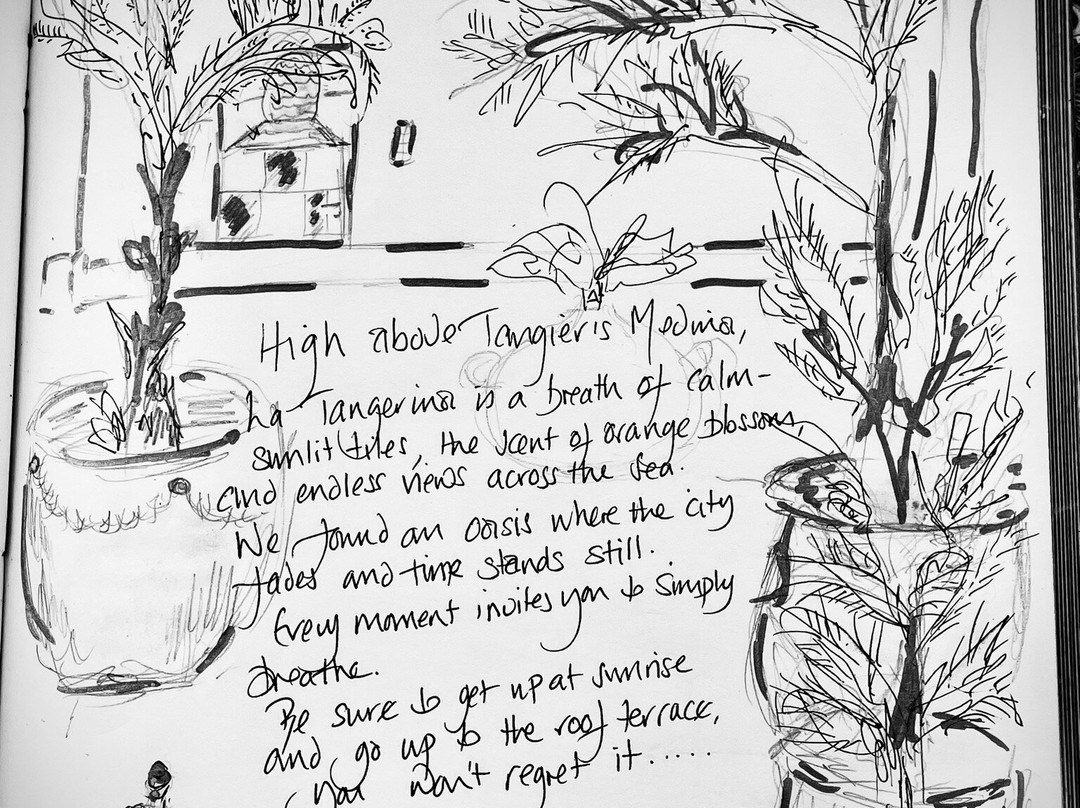 High above Tangier's Medina,
La Tangerina is a breath of calm-
sunlit tiles, the scent of orange blossom,
and endless views across the sea.
We found an oasis where the city
fades and time stands still.
Every moment invites you to simply
breathe.
Be sure to get up at sunrise
and go up to the roof terrace,
you won't regret it.....